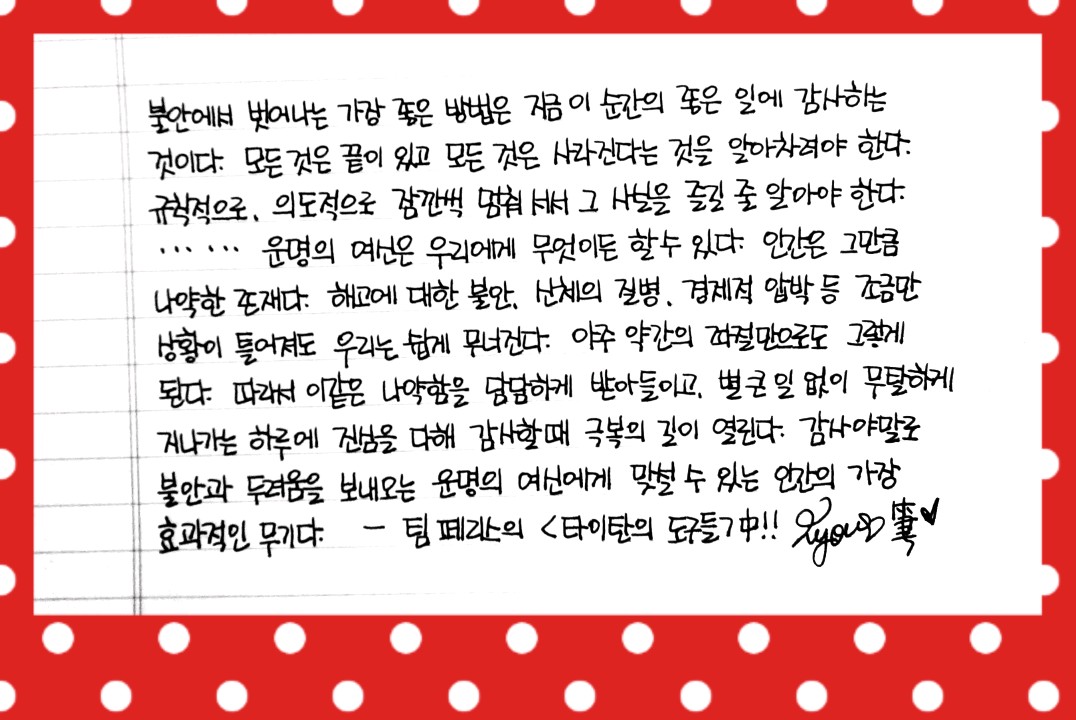 불안에서 벗어나는 가장 좋은 방법은 지금 이 순간의 좋은 일에 감사하는
것이다. 모든 것은 끝이 있고 모든 것은 사라진다는 것을 알아차려야 한다.
규칙적으로, 의도적으로 잠깐씩 멈춰 서서 그 사실을 즐길 줄 알아야 한다.
... ... 운명의 여신은 우리에게 무엇이든 할 수 있다. 인간은 그만큼
나약한 존재다. 해고에 대한 불안, 신체의 질병, 경제적 압박 등 조금만
상황이 틀어져도 우리는 쉽게 무너진다. 아주 약간의 좌절만으로도 그렇게
된다. 따라서 이같은 나약함을 담담하게 받아들이고, 별 큰 일 없이 무탈하게
지나가는 하루에 진심을 다해 감사할 때 극복의 길이 열린다. 감사야말로
불안과 두려움을 보내오는 운명의 여신에게 맞설 수 있는 인간의 가장
효과적인 무기다. - 팀 페리스의 <타이탄의 도구들> 中!! 筆♥